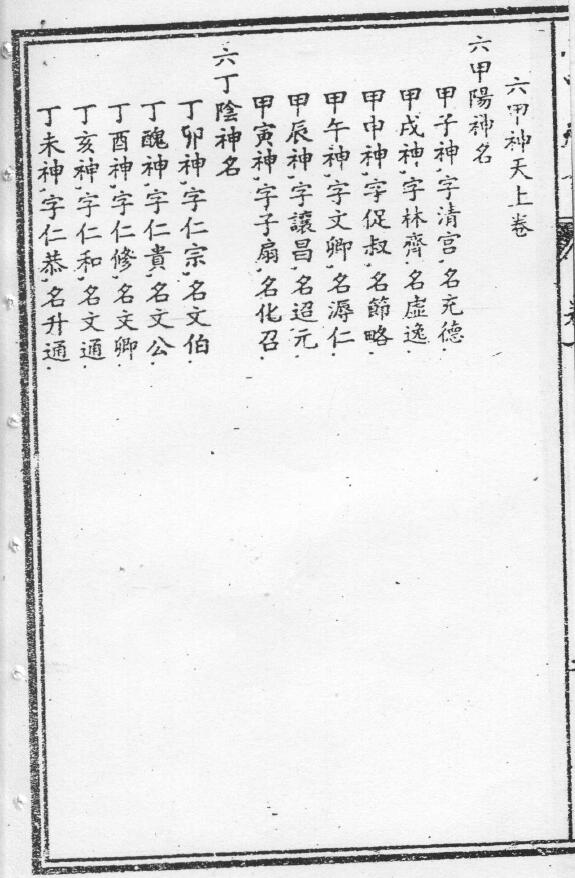 六甲神天上卷
六甲陽神名
甲子神，字清宫，名充德．
甲戌神，字林齊，名虛逸．
甲申神，字促叔，名節略．
甲午神，字文卿，名溽仁．
甲辰神，字讓昌，名迢元．
甲寅神，字子扇，名化召．
六丁陰神名
丁卯神，字仁宗，名文伯．
丁醜神，字仁貴，名文公．
丁酉神，字仁修，名文卿．
丁亥神，字仁和，名文通．
丁未神，字仁恭，名升通．